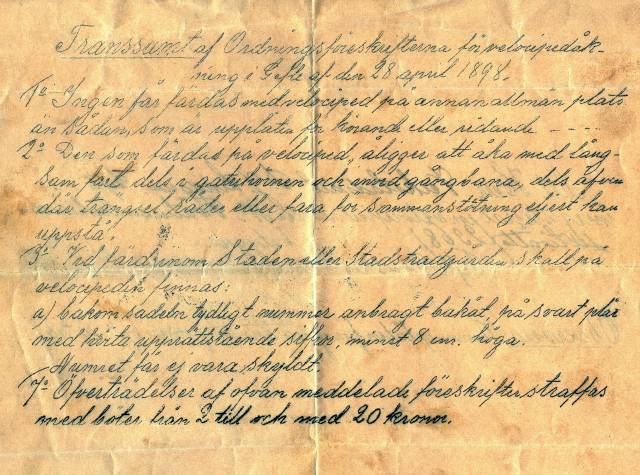 Transsumt af Ordningsföreskrifterna för velocipedåk-
ning i Gefle af den 28 april 1898.
1º Ingen får färdas med velociped på annan allmän plats
än sådan, som är upplåten för körande eller ridande - - - -
2º Den som färdas på velociped, åligger att åka med lång-
sam fart dels i gatuhörnen och invid gångbana, dels äfven
där trängsel råder eller fara för sammanstötning ejest kan
uppstå.
3º Vid färd inom Staden eller Stadsträdgården skall på
velocipeden finnas:
a) bakom sadeln tydligt nummer anbragt bakåt, på svart plåt
med hvita upprättstående siffror, minst 8 cm. höga.
Numret får ej vara skyldt.
7º Öfverträdelser af ofvan meddelade föreskrifter straffas
med böter från 2 till och med 20 kronor.